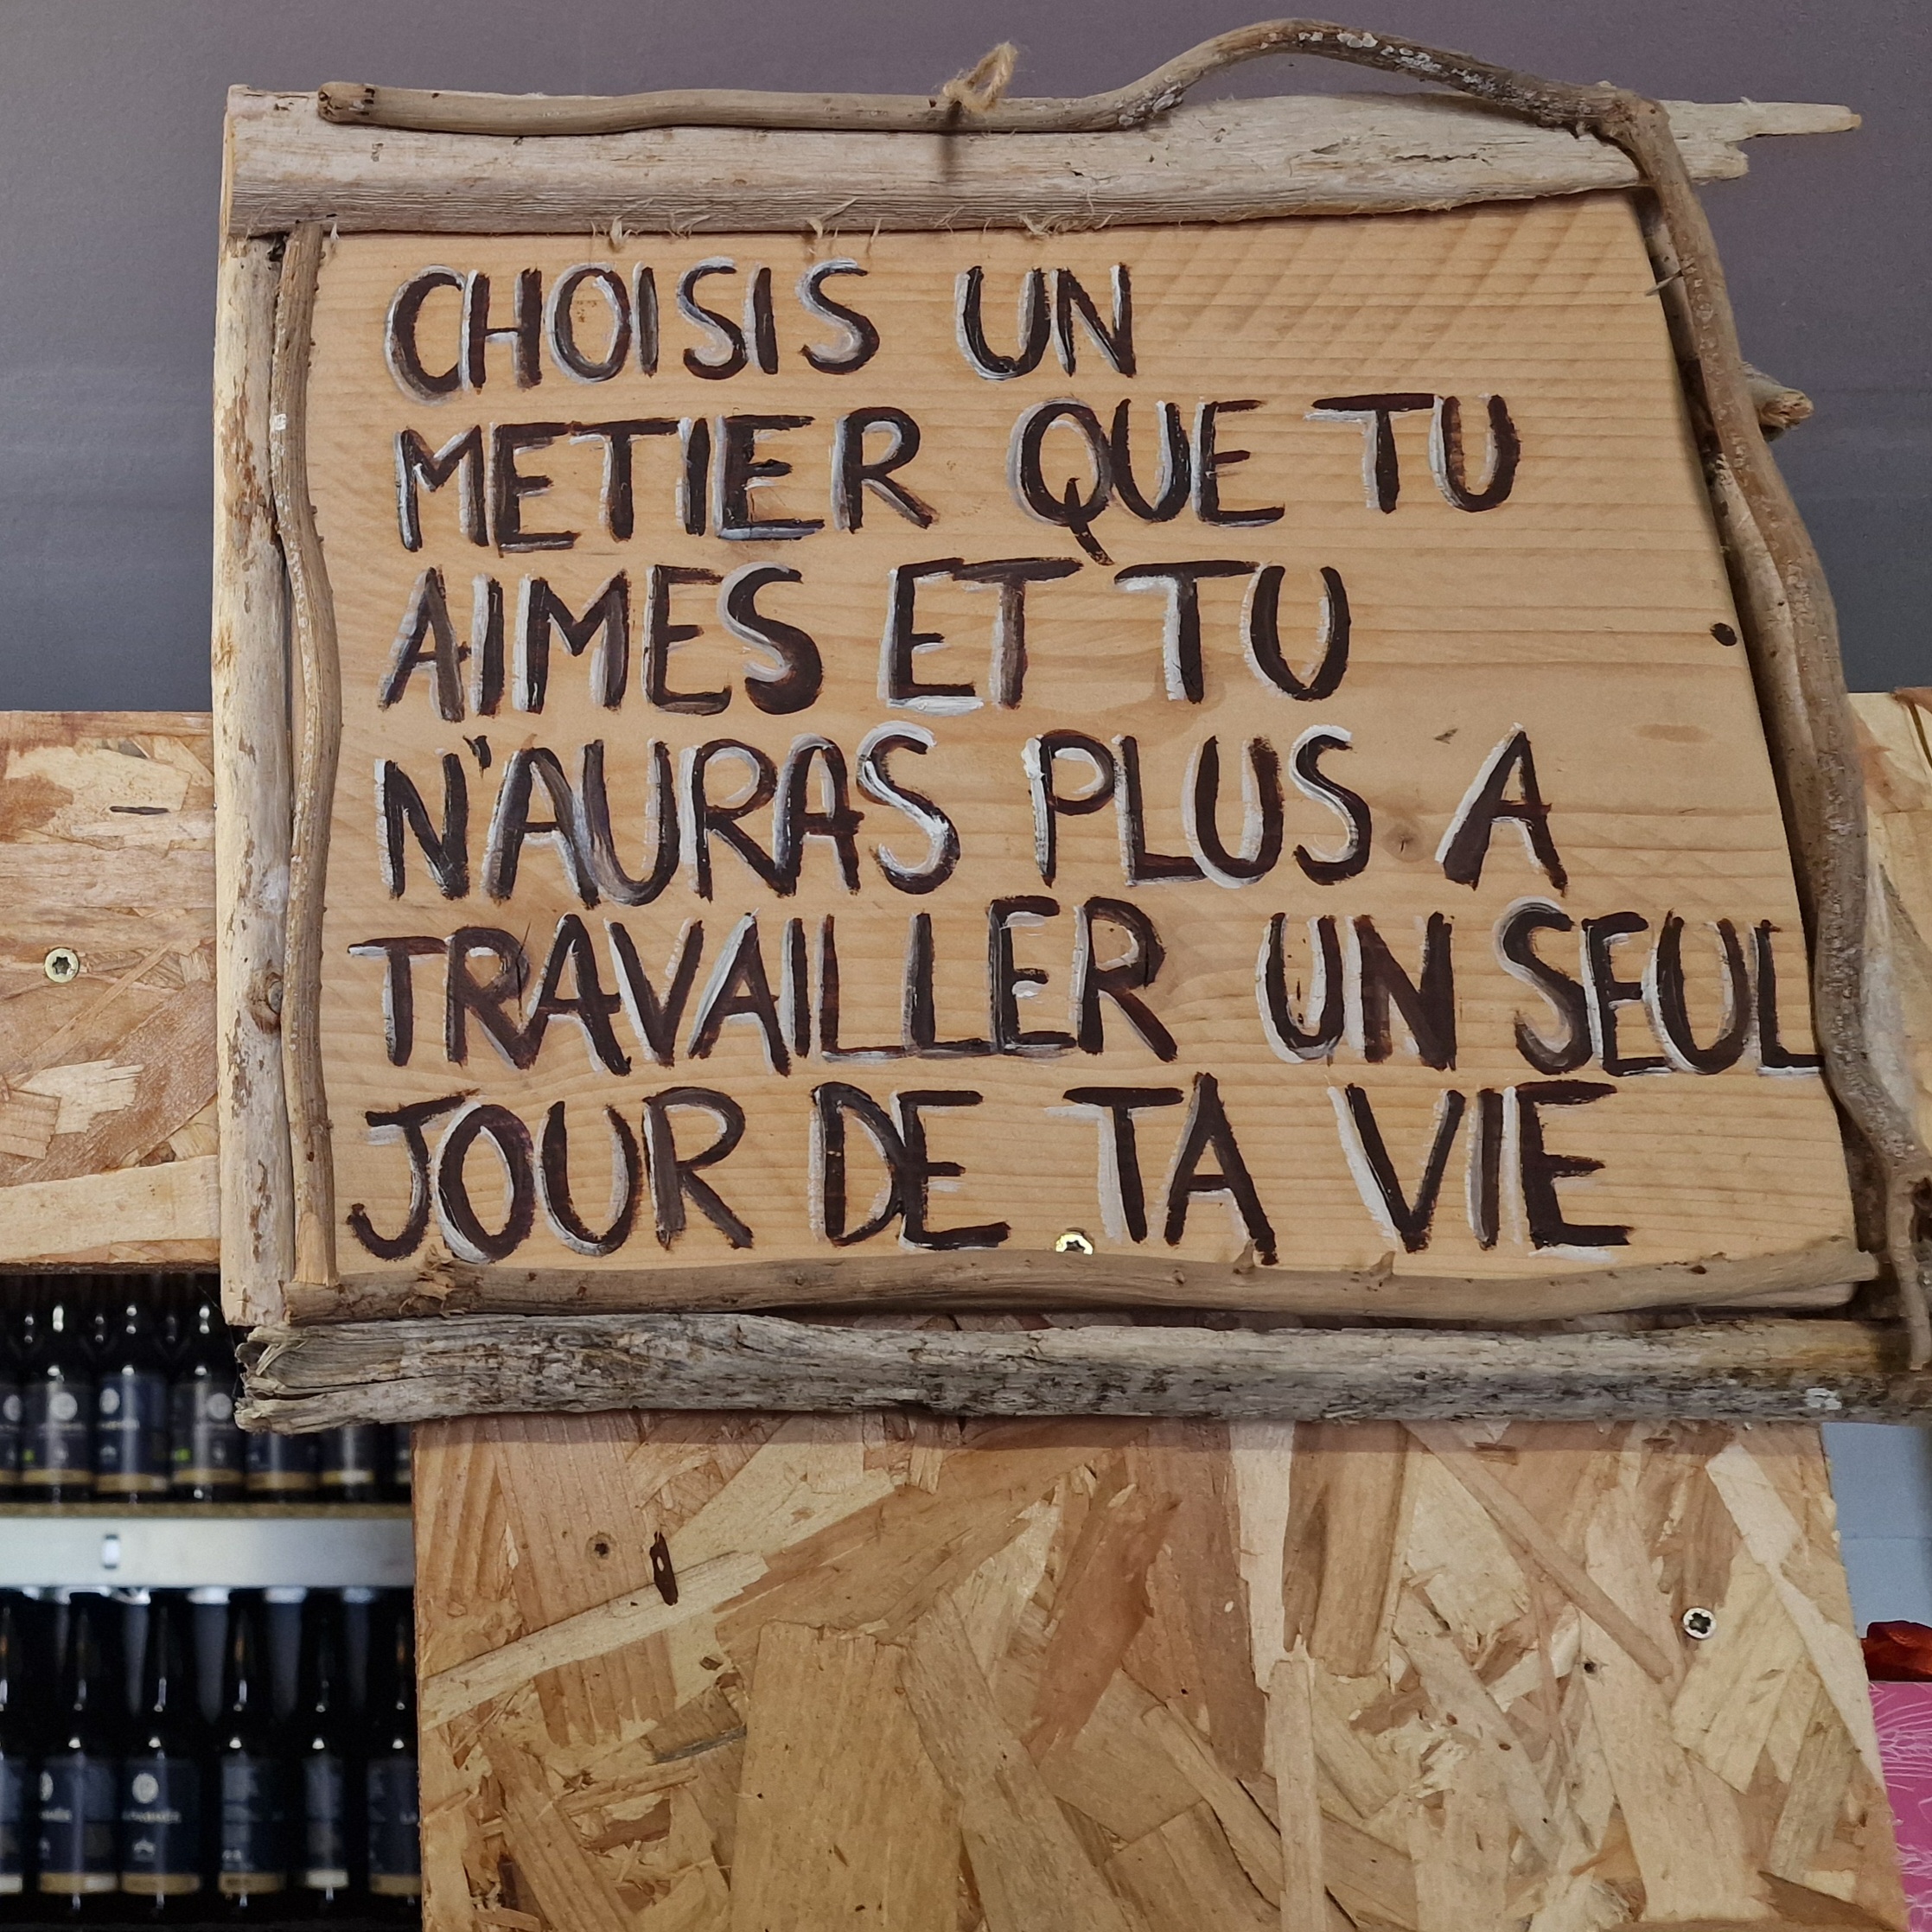 CHOISIS UN
METIER QUE TU
AIMES ET TU
N'AURAS PLUS A
TRAVAILLER UN SEUL
JOUR DE TA VIE